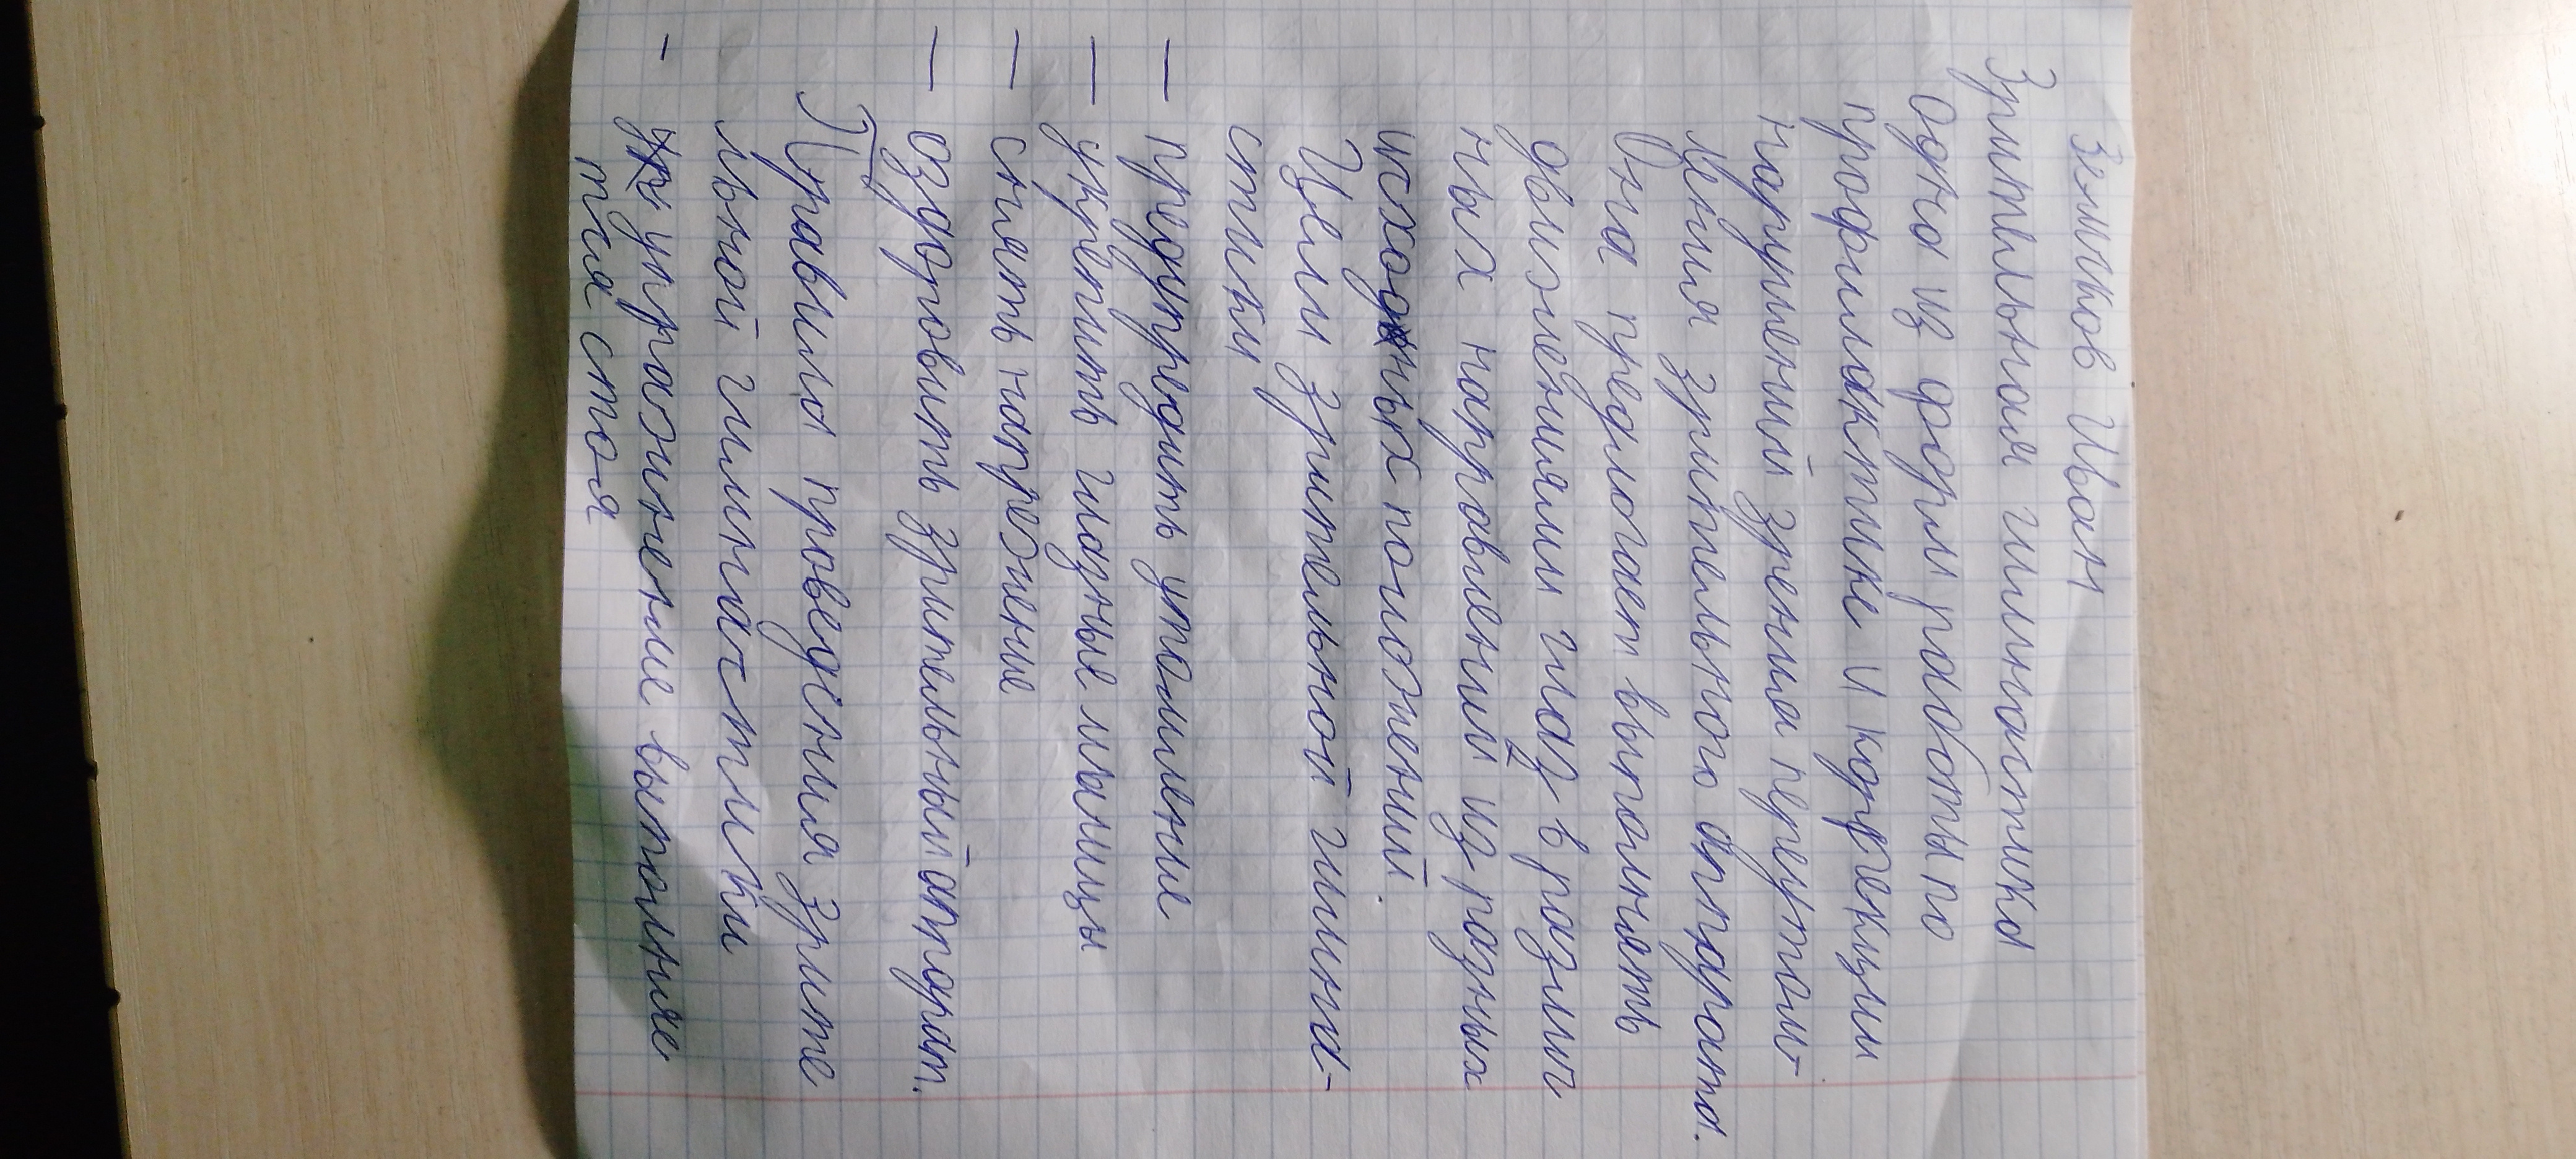 Земчков Иван
Зрительная гимнастика
Одна из форм работы по
профилактике и коррекции
нарушений зрения переутом-
ления зрительного аппарата.
Она предлогает выполнять
движениями глаз в различ
ных направлении из разных
исходных положений.
Цели зрительной гимна-
стики
— предупредить утомление
— укрепить глазные мышцы
— снять напрежение
— оздоровить зрительный аппарат.
Правила проведения зрите
льной гимнастики
- упражнение выполняе
тся стоя